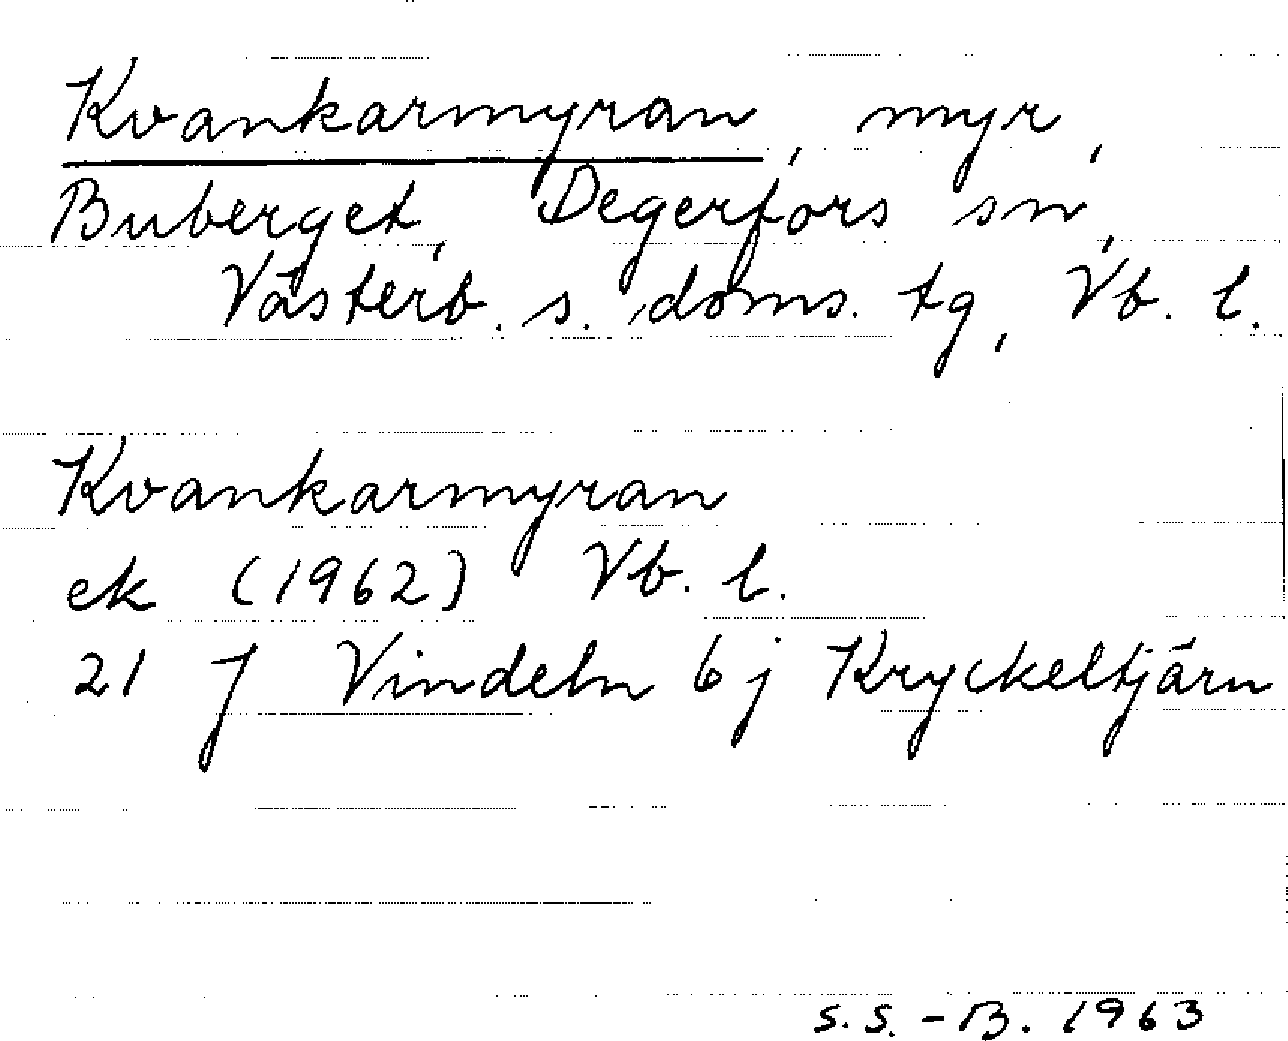 Kvankarmyran, myr,
Buberget, Degerfors sn,
Västerb. s. doms. tg, Vb. l.
Kvankarmyran
ek (1962) Vb. l.
21 J Vindeln 6j Kryckeltjärn
S.S.-B. 1963